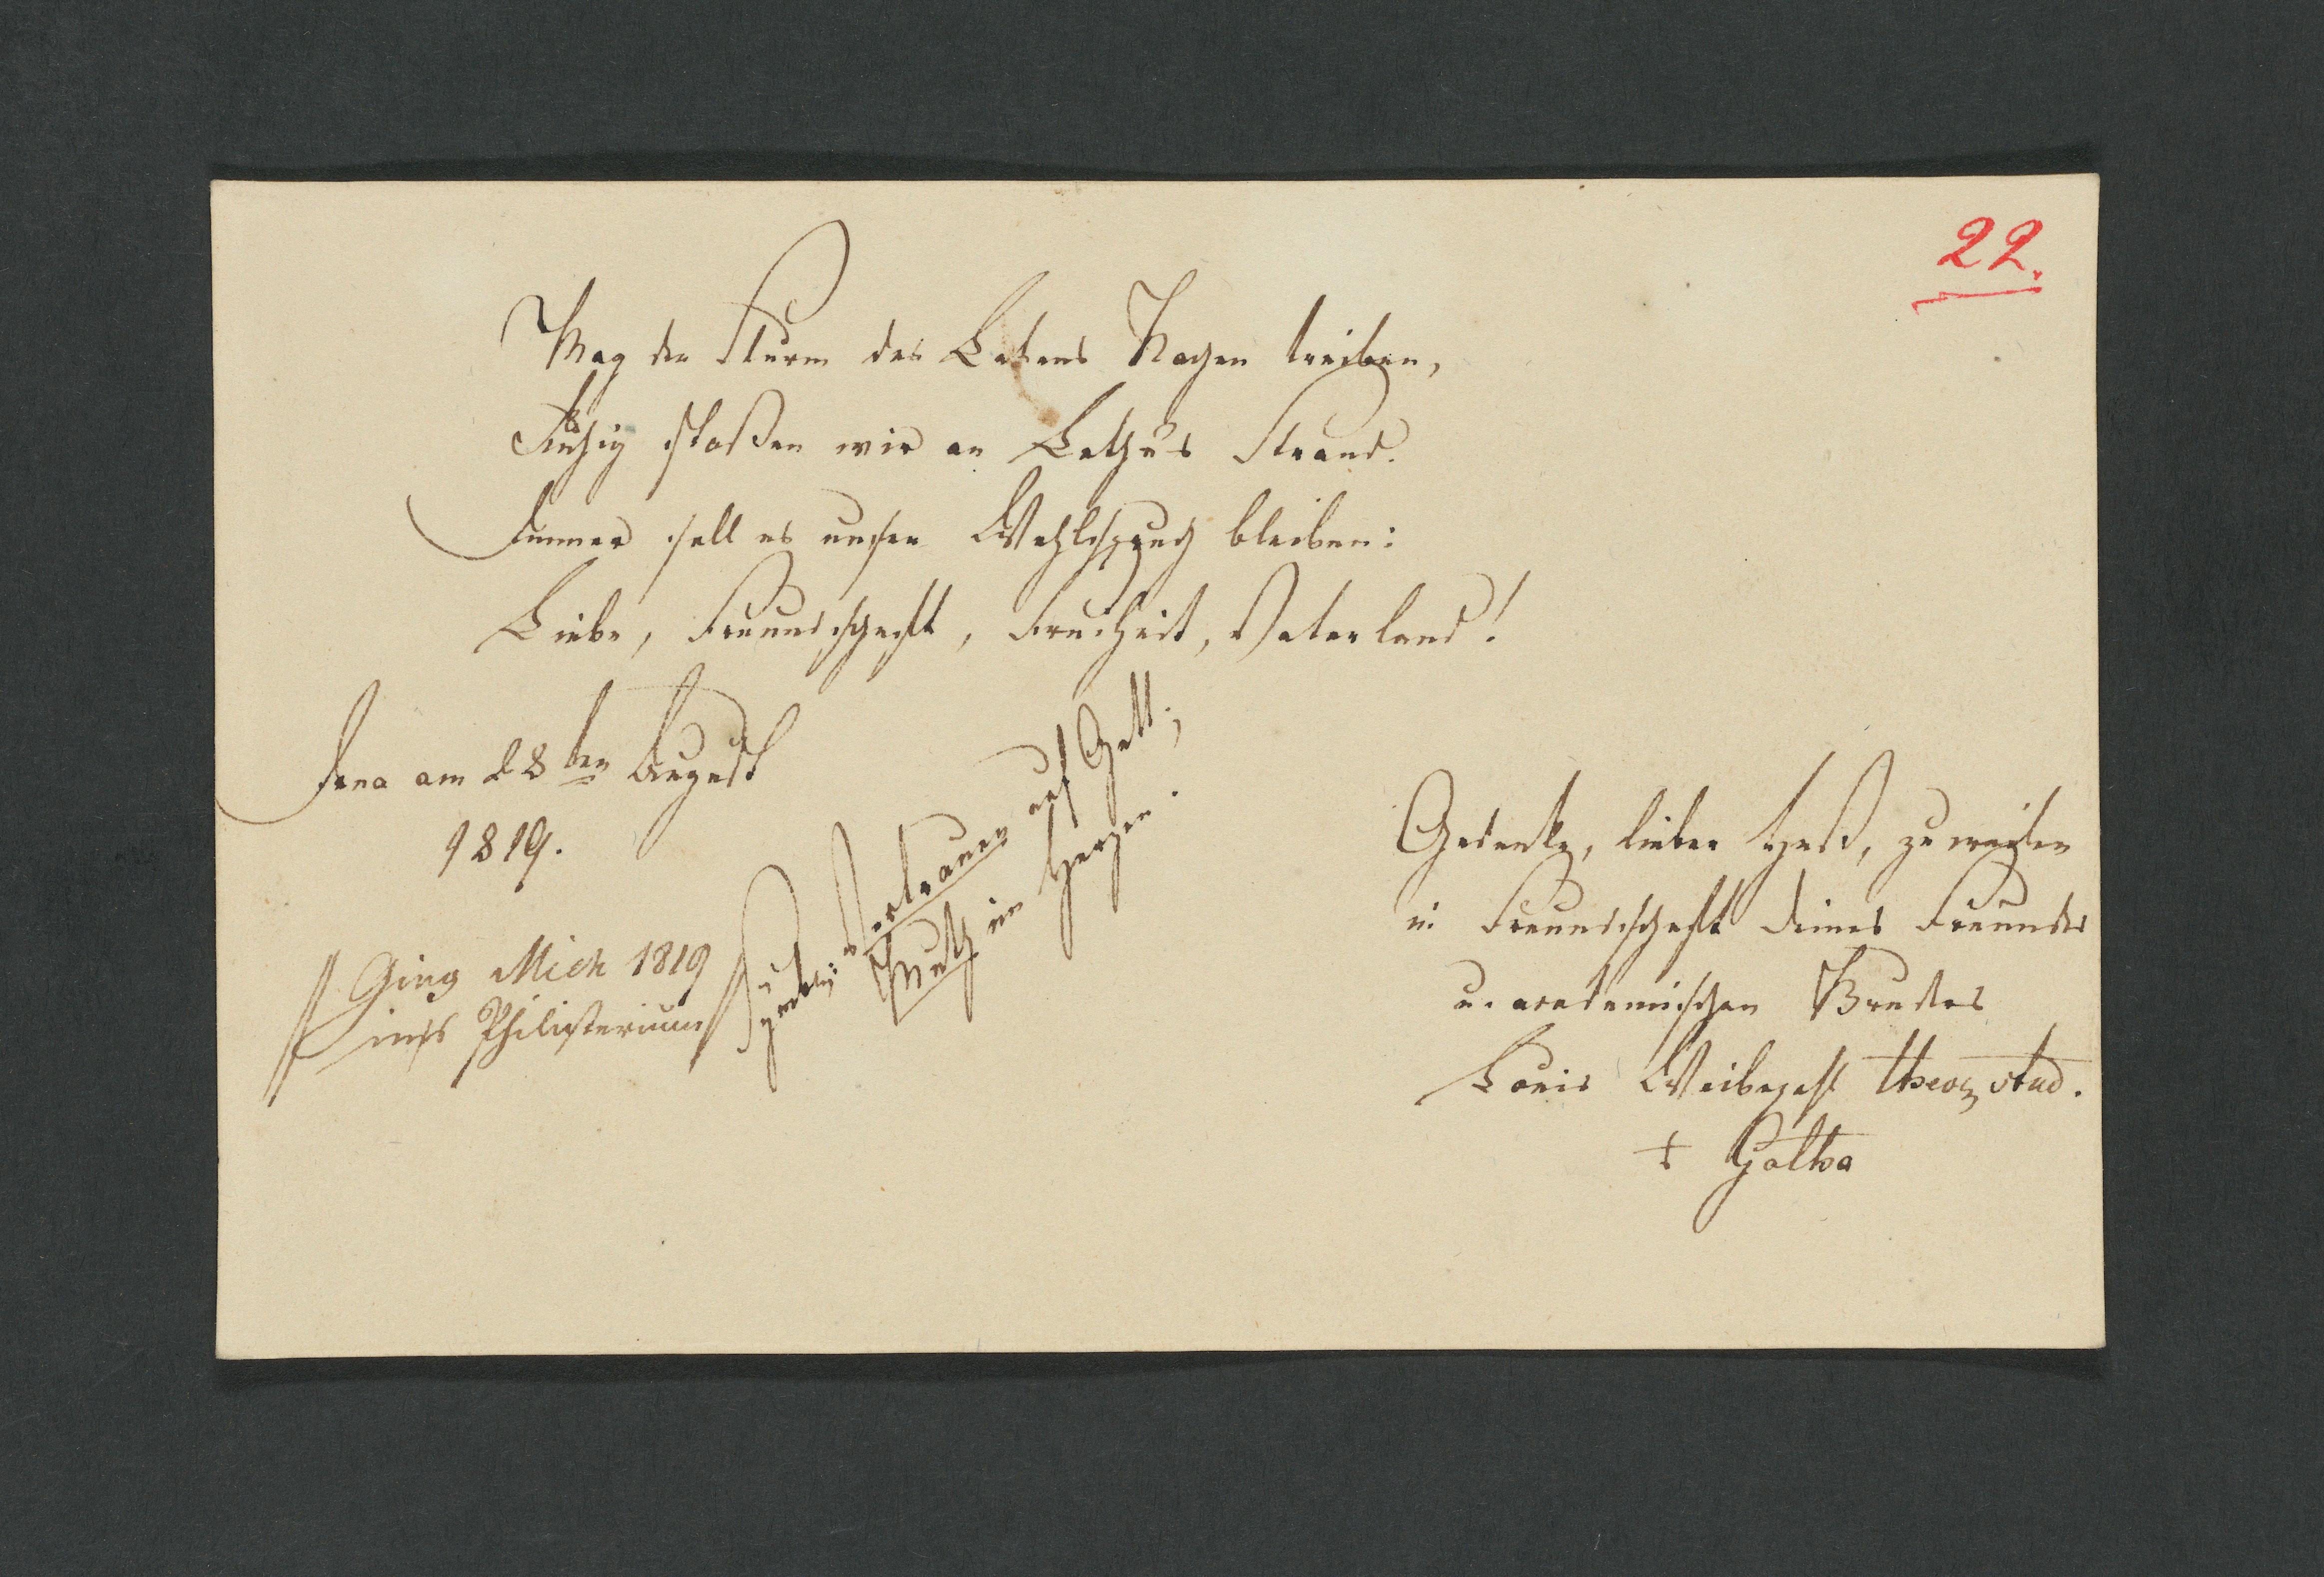 22.
Mag der Sturm des Lebens Nachen treiben,
Ruhig stoßen wir an Lethe's Strand.
Immer soll es unser Wahlspruch bleiben:
Liebe, Freundschaft, Freiheit, Vaterland!
Jena am 28ten August
1819.
Ging Mich 1819
ins Philisterium
Vertrauen auf Gott;
Muth im Herzen.
Gedenke, lieber Heß, zuweilen
in Freundschaft deines Freundes
u. academischen Bruders
Louis theol. stud.
+ Gotha